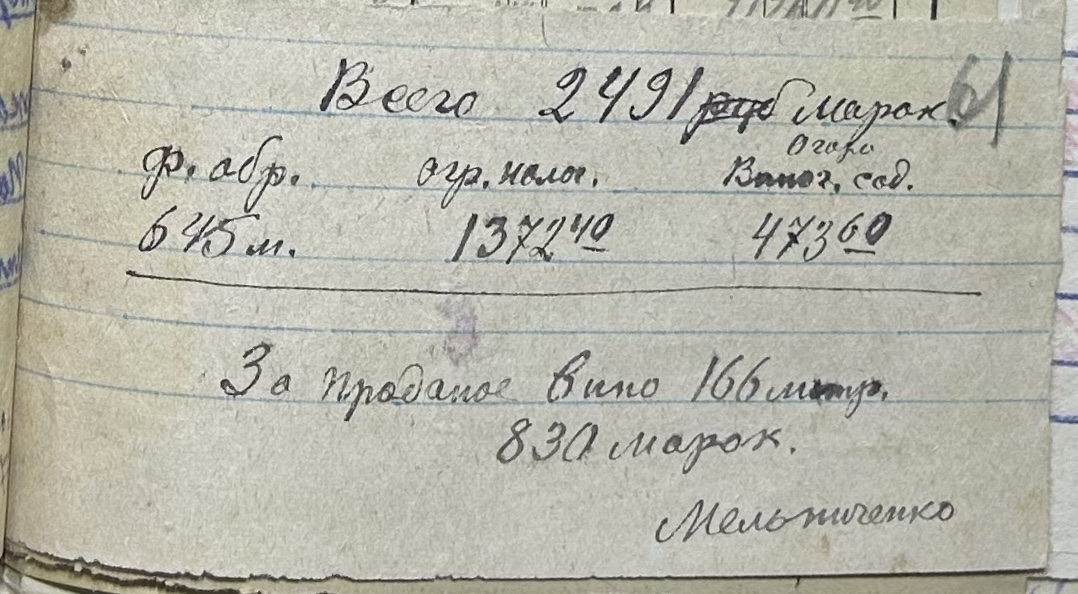 Всего 2491 руб марок. 61
Огоро
Ф. обр. огр. налог. Виног. сад.
645 м. 1372 40 473 60
За проданое вино 166 литр.
830 марок.
Мельниченко